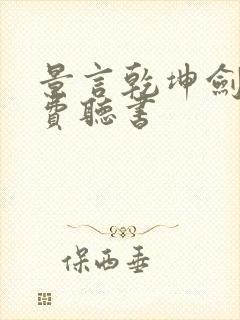 景言乾坤劍
費聽書
保西垂